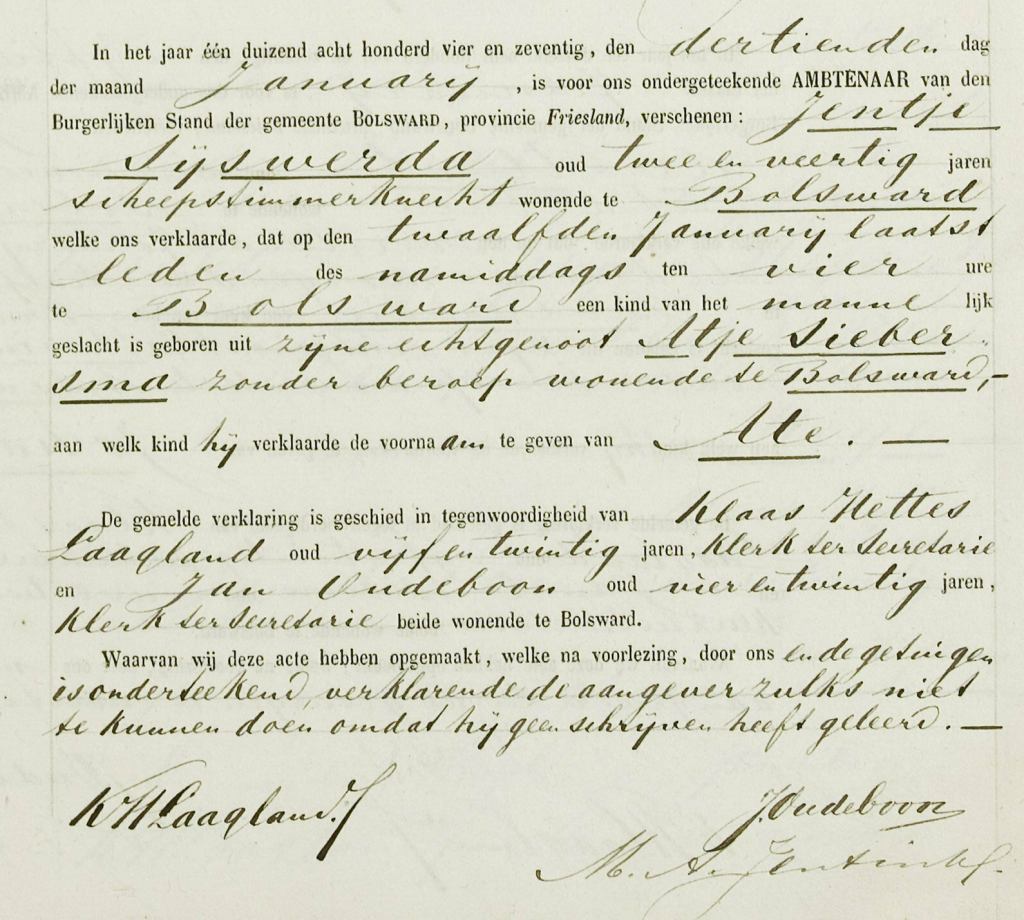 In het jaar één duizend acht honderd vier en zeventig, den dertienden dag
der maand January, is voor ons ondergeteekende AMBTENAAR van den
Burgerlijken Stand der gemeente BOLSWARD, provincie Friesland, verschenen: Jentje
Sijswerda oud twee en veertig jaren
scheepstimmerknecht wonende te Bolsward
welke ons verklaarde, dat op den twaalfden January laatst
leden des namiddags ten vier ure
te Bolsward een kind van het manne lijk
geslacht is geboren uit zijne echtgenoot Atje Sieber
sma zonder beroep wonende te Bolsward,—
aan welk kind hij verklaarde de voornaam te geven van Ate. —
De gemelde verklaring is geschied in tegenwoordigheid van Klaas Hettes
Laagland oud vijf en twintig jaren, Klerk ter Secretarie
en Jan Oudeboon oud vier en twintig jaren,
Klerk ter Secretarie beide wonende te Bolsward.
Waarvan wij deze acte hebben opgemaakt, welke na voorlezing, door ons en de getuigen
is onderteekend, verklarende de aangever zulks niet
te kunnen doen omdat hij geen schrijven heeft geleerd. —
KHLaagland.
J. Oudeboon
M. A. Jentink